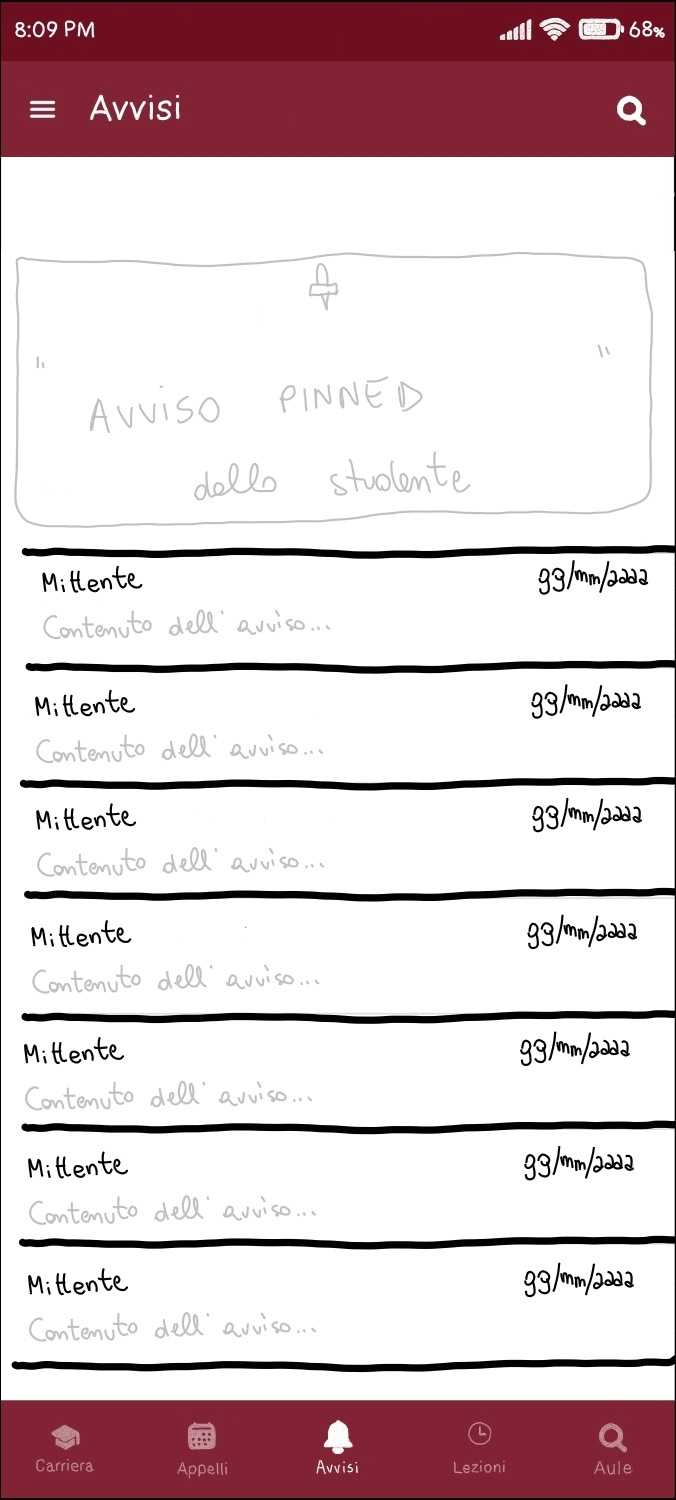 8:09 PM 68%
Avvisi
" "
AVVISO PINNED
dello studente
Mittente gg/mm/aaaa
Contenuto dell' avviso...
Mittente gg/mm/aaaa
Contenuto dell' avviso...
Mittente gg/mm/aaaa
Contenuto dell' avviso...
Mittente gg/mm/aaaa
Contenuto dell' avviso...
Mittente gg/mm/aaaa
Contenuto dell' avviso...
Mittente gg/mm/aaaa
Contenuto dell' avviso...
Mittente gg/mm/aaaa
Contenuto dell' avviso...
Carriera Appelli Avvisi Lezioni Aule